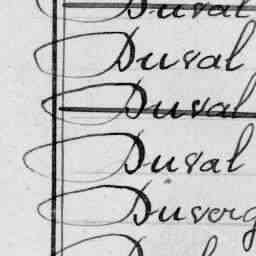 Duval
Duval
Duval
Duval
Duverg